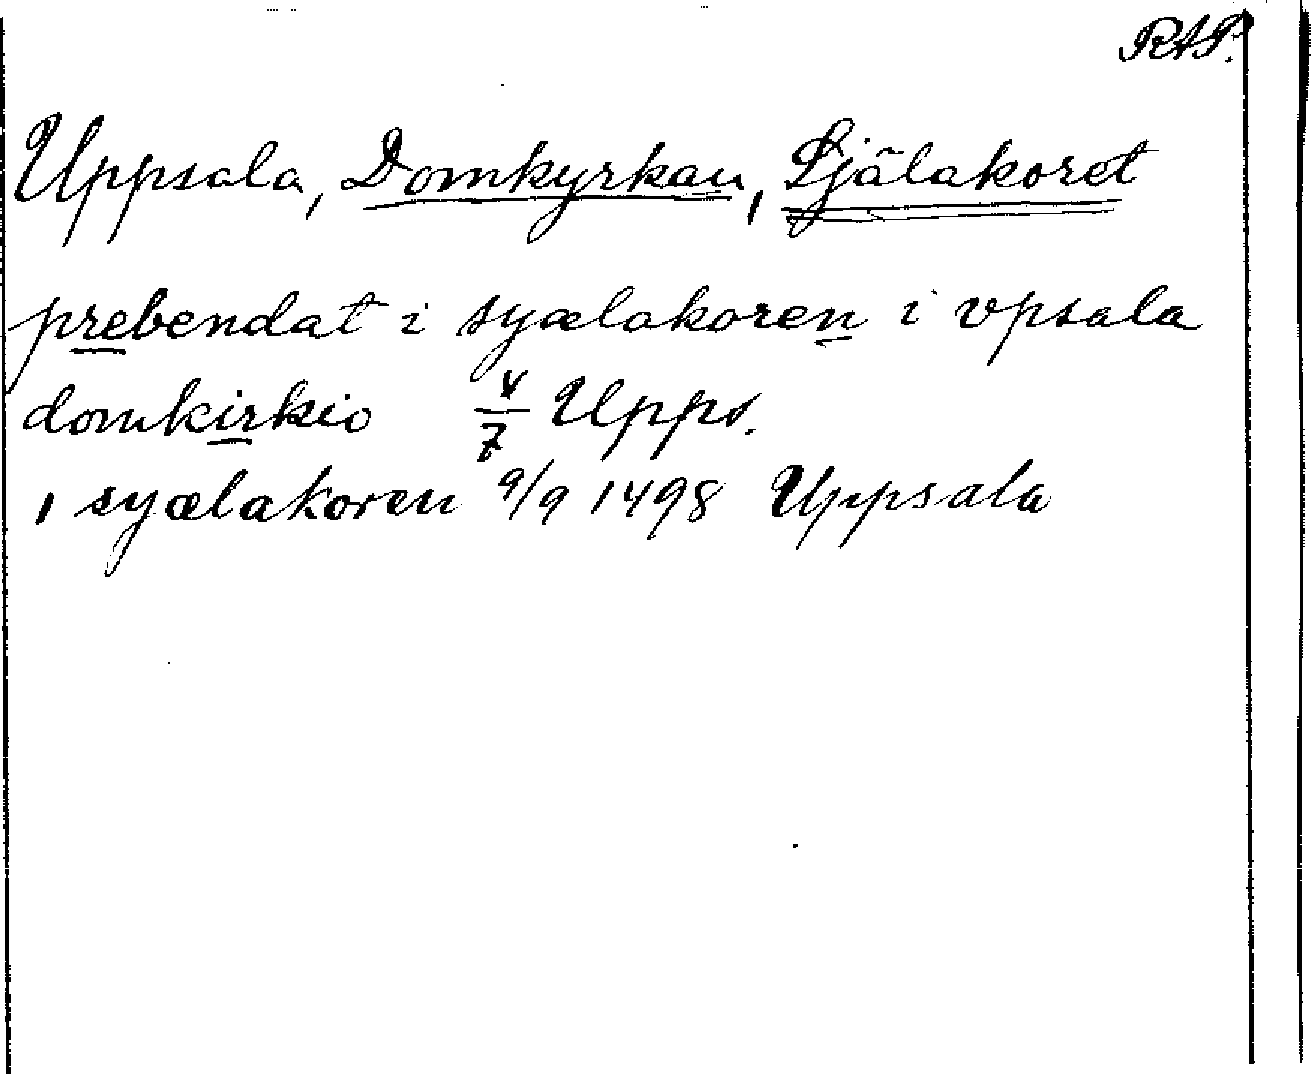 RAP.
Uppsala, Domkyrkan, Själakoret
prebendat i syælakoren i vpsala
domkirkio Upps.
, syælakoren 9/9 1498 Uppsala